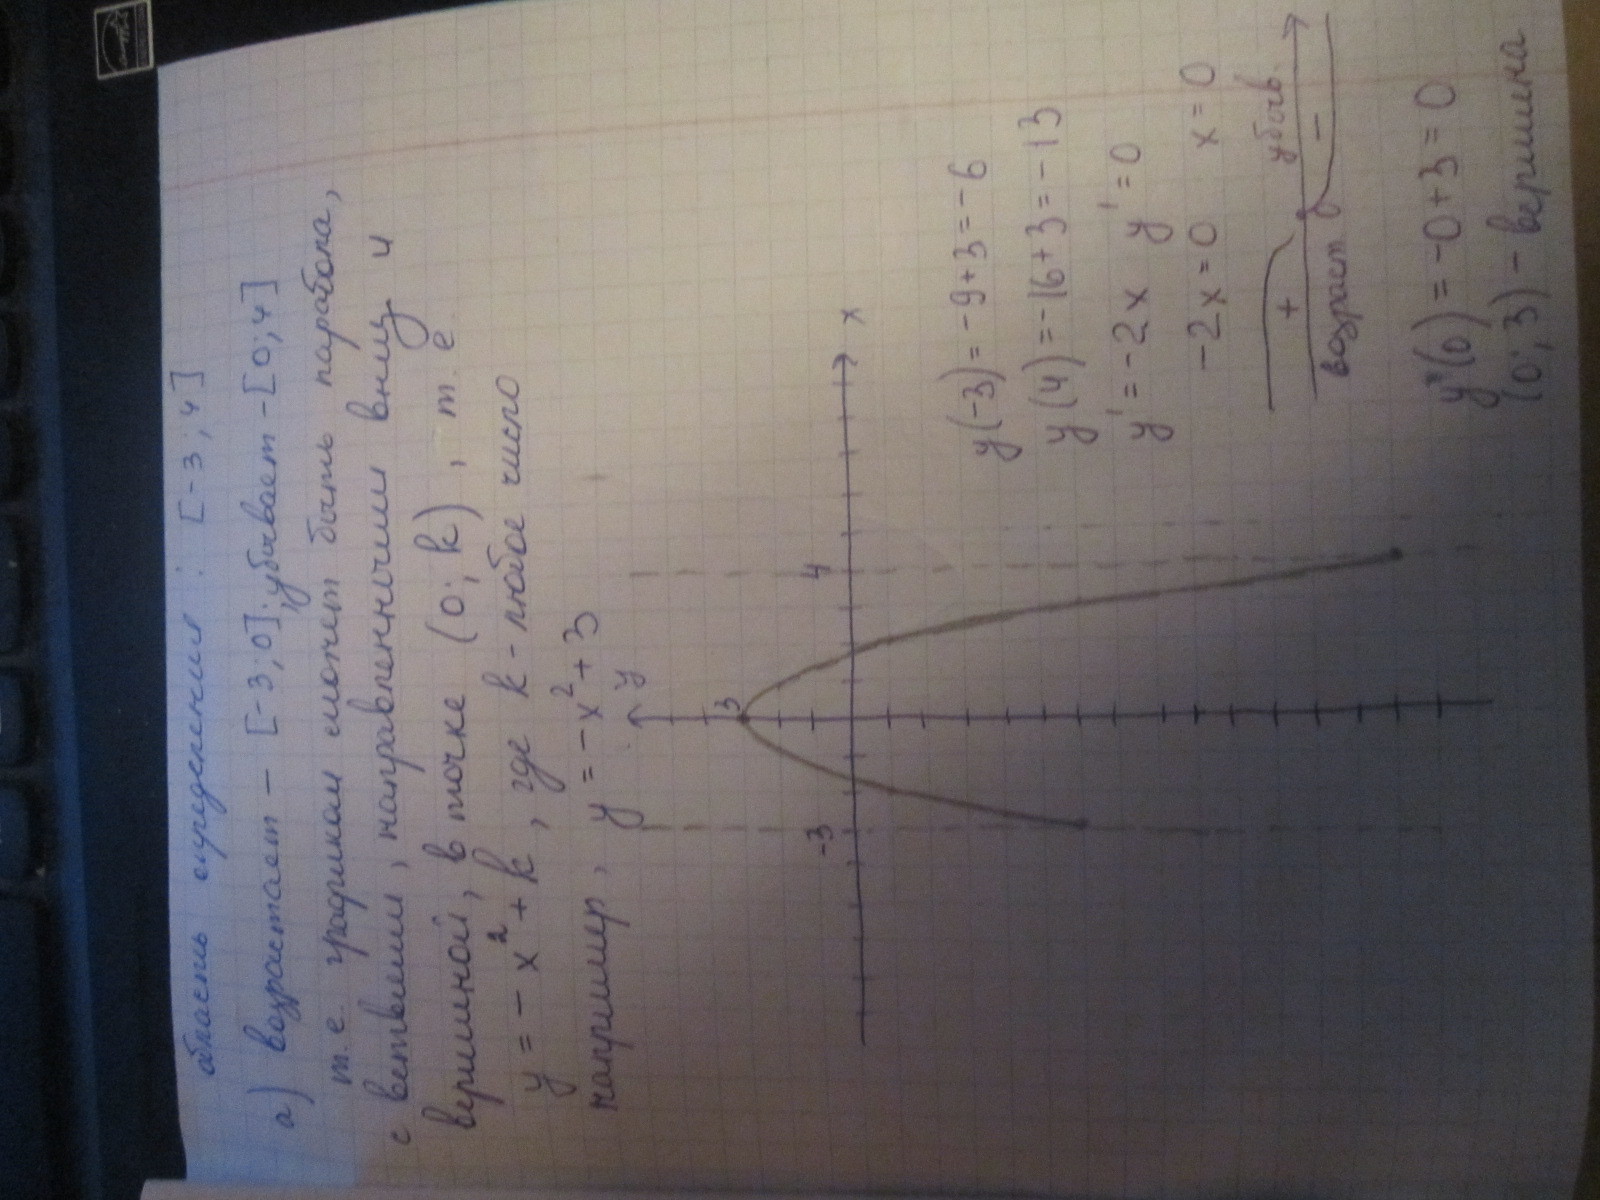 область определения : [-3; 4]
а) возрастает – [-3; 0]; убывает - [0; 4]
т.е. графиком может быть парабола,
с ветвями, направленными вниз и
вершиной, в точке (0; k), т. е.
y = - x² + k, где k - любое число
например, y = - x² + 3
y
3
-3
4
x
y(-3) = -9+3 = -6
y(4) = -16+3 = -13
y' = -2x y' = 0
-2x = 0 x = 0
+ -
возраст. убыв.
y"(0) = -0+3 = 0
(0; 3) - вершина